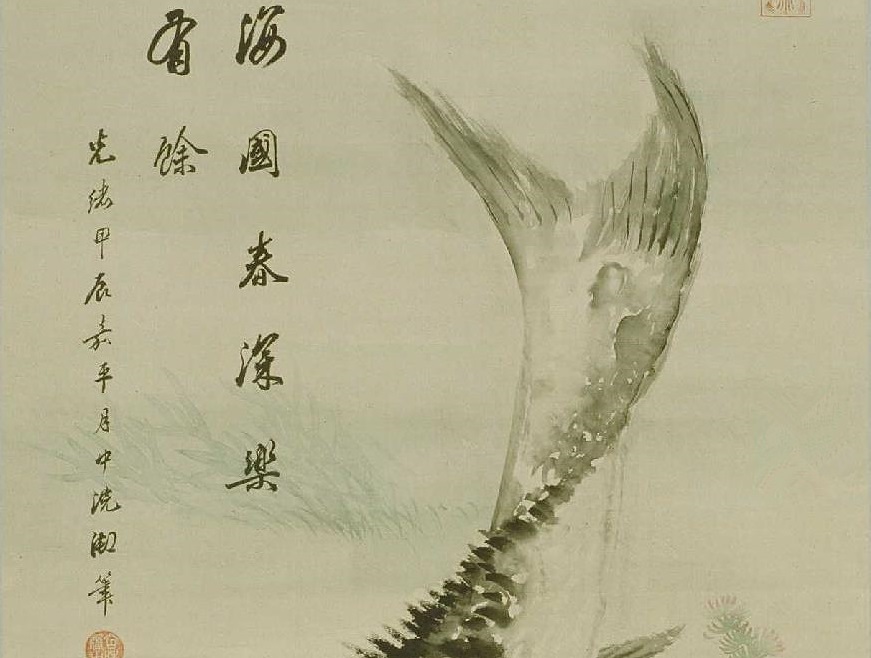 海國春深樂
有餘
光緒甲辰嘉平月中浣湖筆